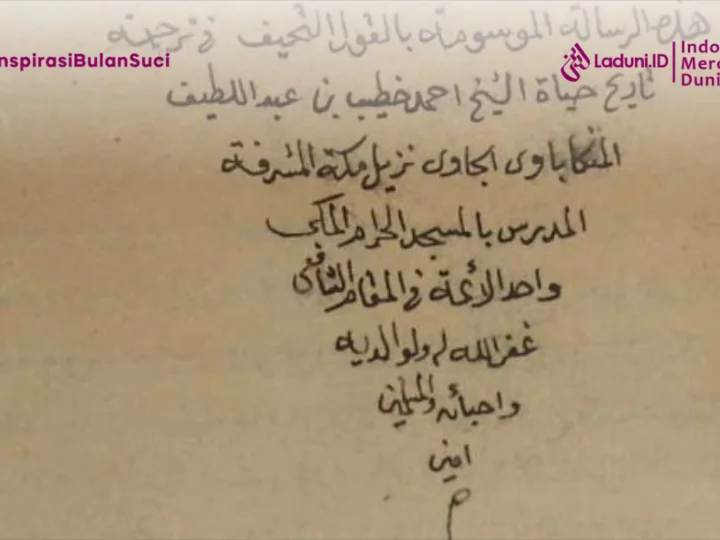 nspirasiBulanSuci
Laduni.ID
Indo
Merc
Duni
هذه الرسالة الموسومة بالقول التحيف في ترجمة
تاريخ حياة الشيخ احمد خطيب بن عبد اللطيف
المنكاباوى الجاوى نزيل مكة المشرفة
المدرس بالمسجد الحرام المكي
واحد الأئمة في المقام الشافعي
غفر الله له ولوالديه
واحبائه والمسلمين
امين
م